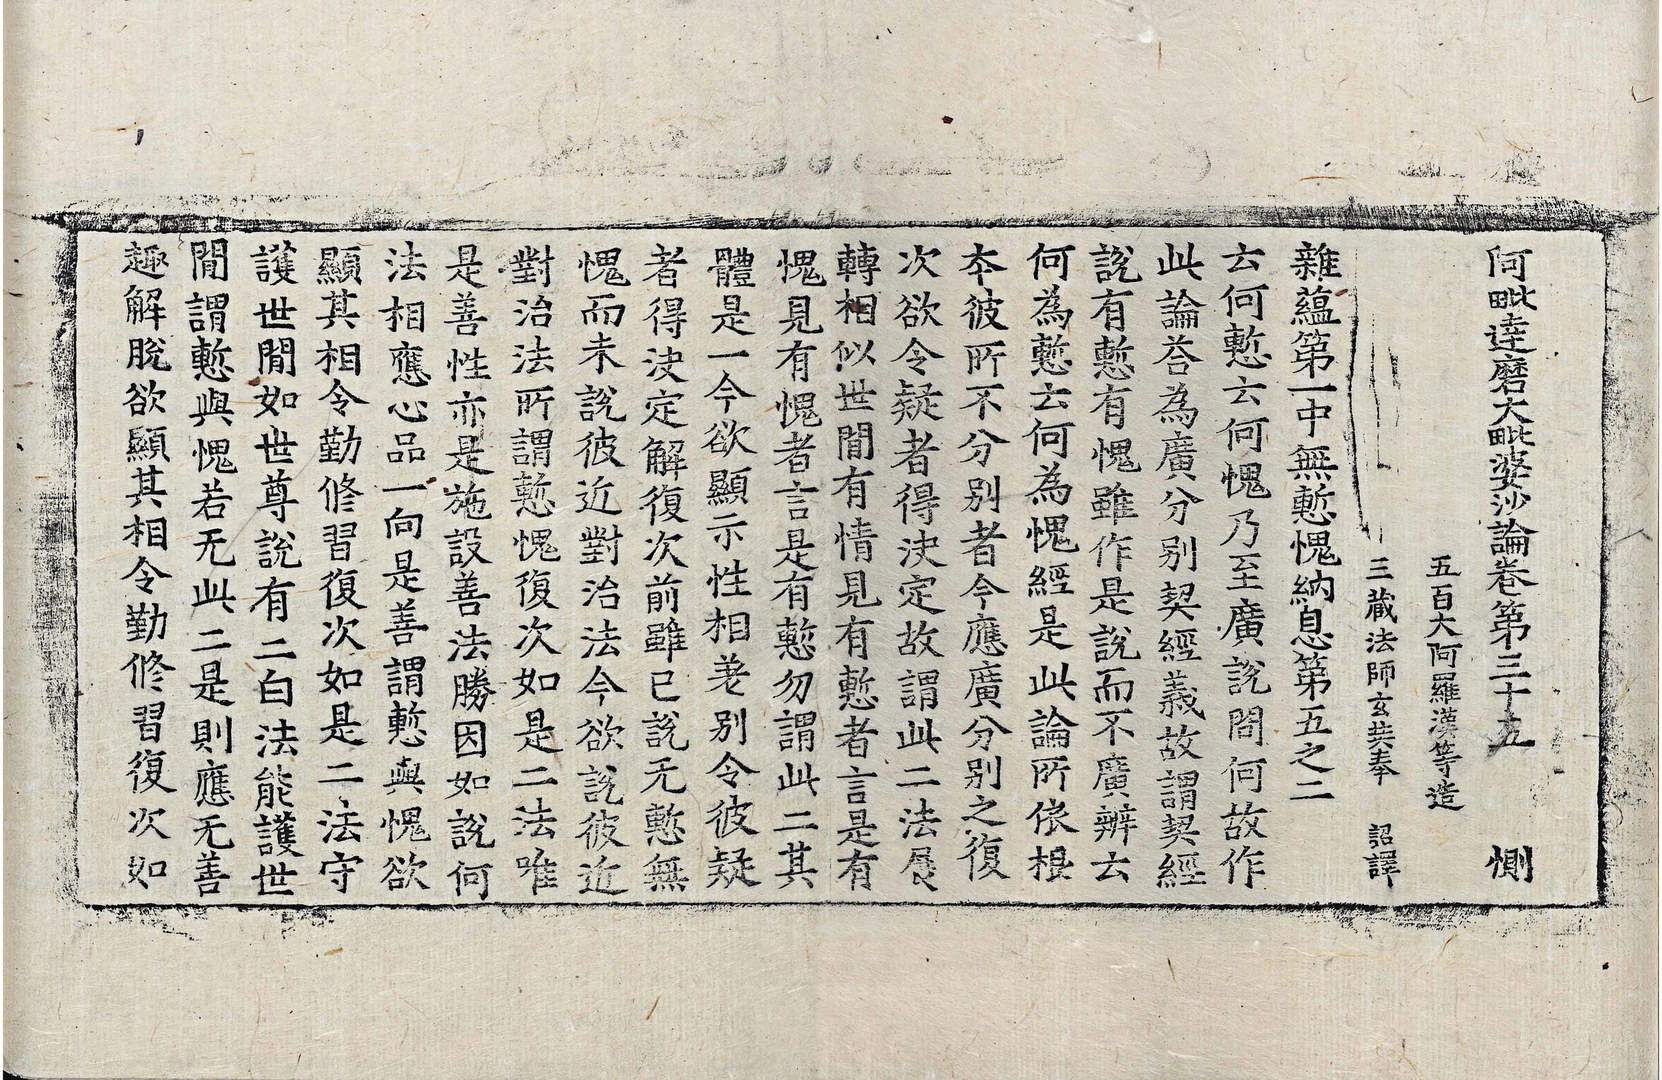 阿毗達磨大毗婆沙論卷第三十五　惻
五百大阿羅漢等造
三藏法師玄奘奉　詔譯
雜蘊第一中無慙愧納息第五之二
云何慙云何愧乃至廣說問何故作
此論荅為廣分別契經義故謂契經
說有慙有愧雖作是說而不廣辨云
何為慙云何為愧經是此論所依根
本彼所不分別者今應廣分別之復
次欲令疑者得決定故謂此二法展
轉相似世閒有情見有慙者言是有
愧見有愧者言是有慙勿謂此二其
體是一今欲顯示性相差別令彼疑
者得決定解復次前雖已說无慙無
愧而未說彼近對治法今欲說彼近
對治法所謂慙愧復次如是二法唯
是善性亦是施設善法勝因如說何
法相應心品一向是善謂慙與愧欲
顯其相令勤修習復次如是二法守
護世閒如世尊說有二白法能護世
閒謂慙與愧若无此二是則應无善
趣解脫欲顯其相令勤修習復次如